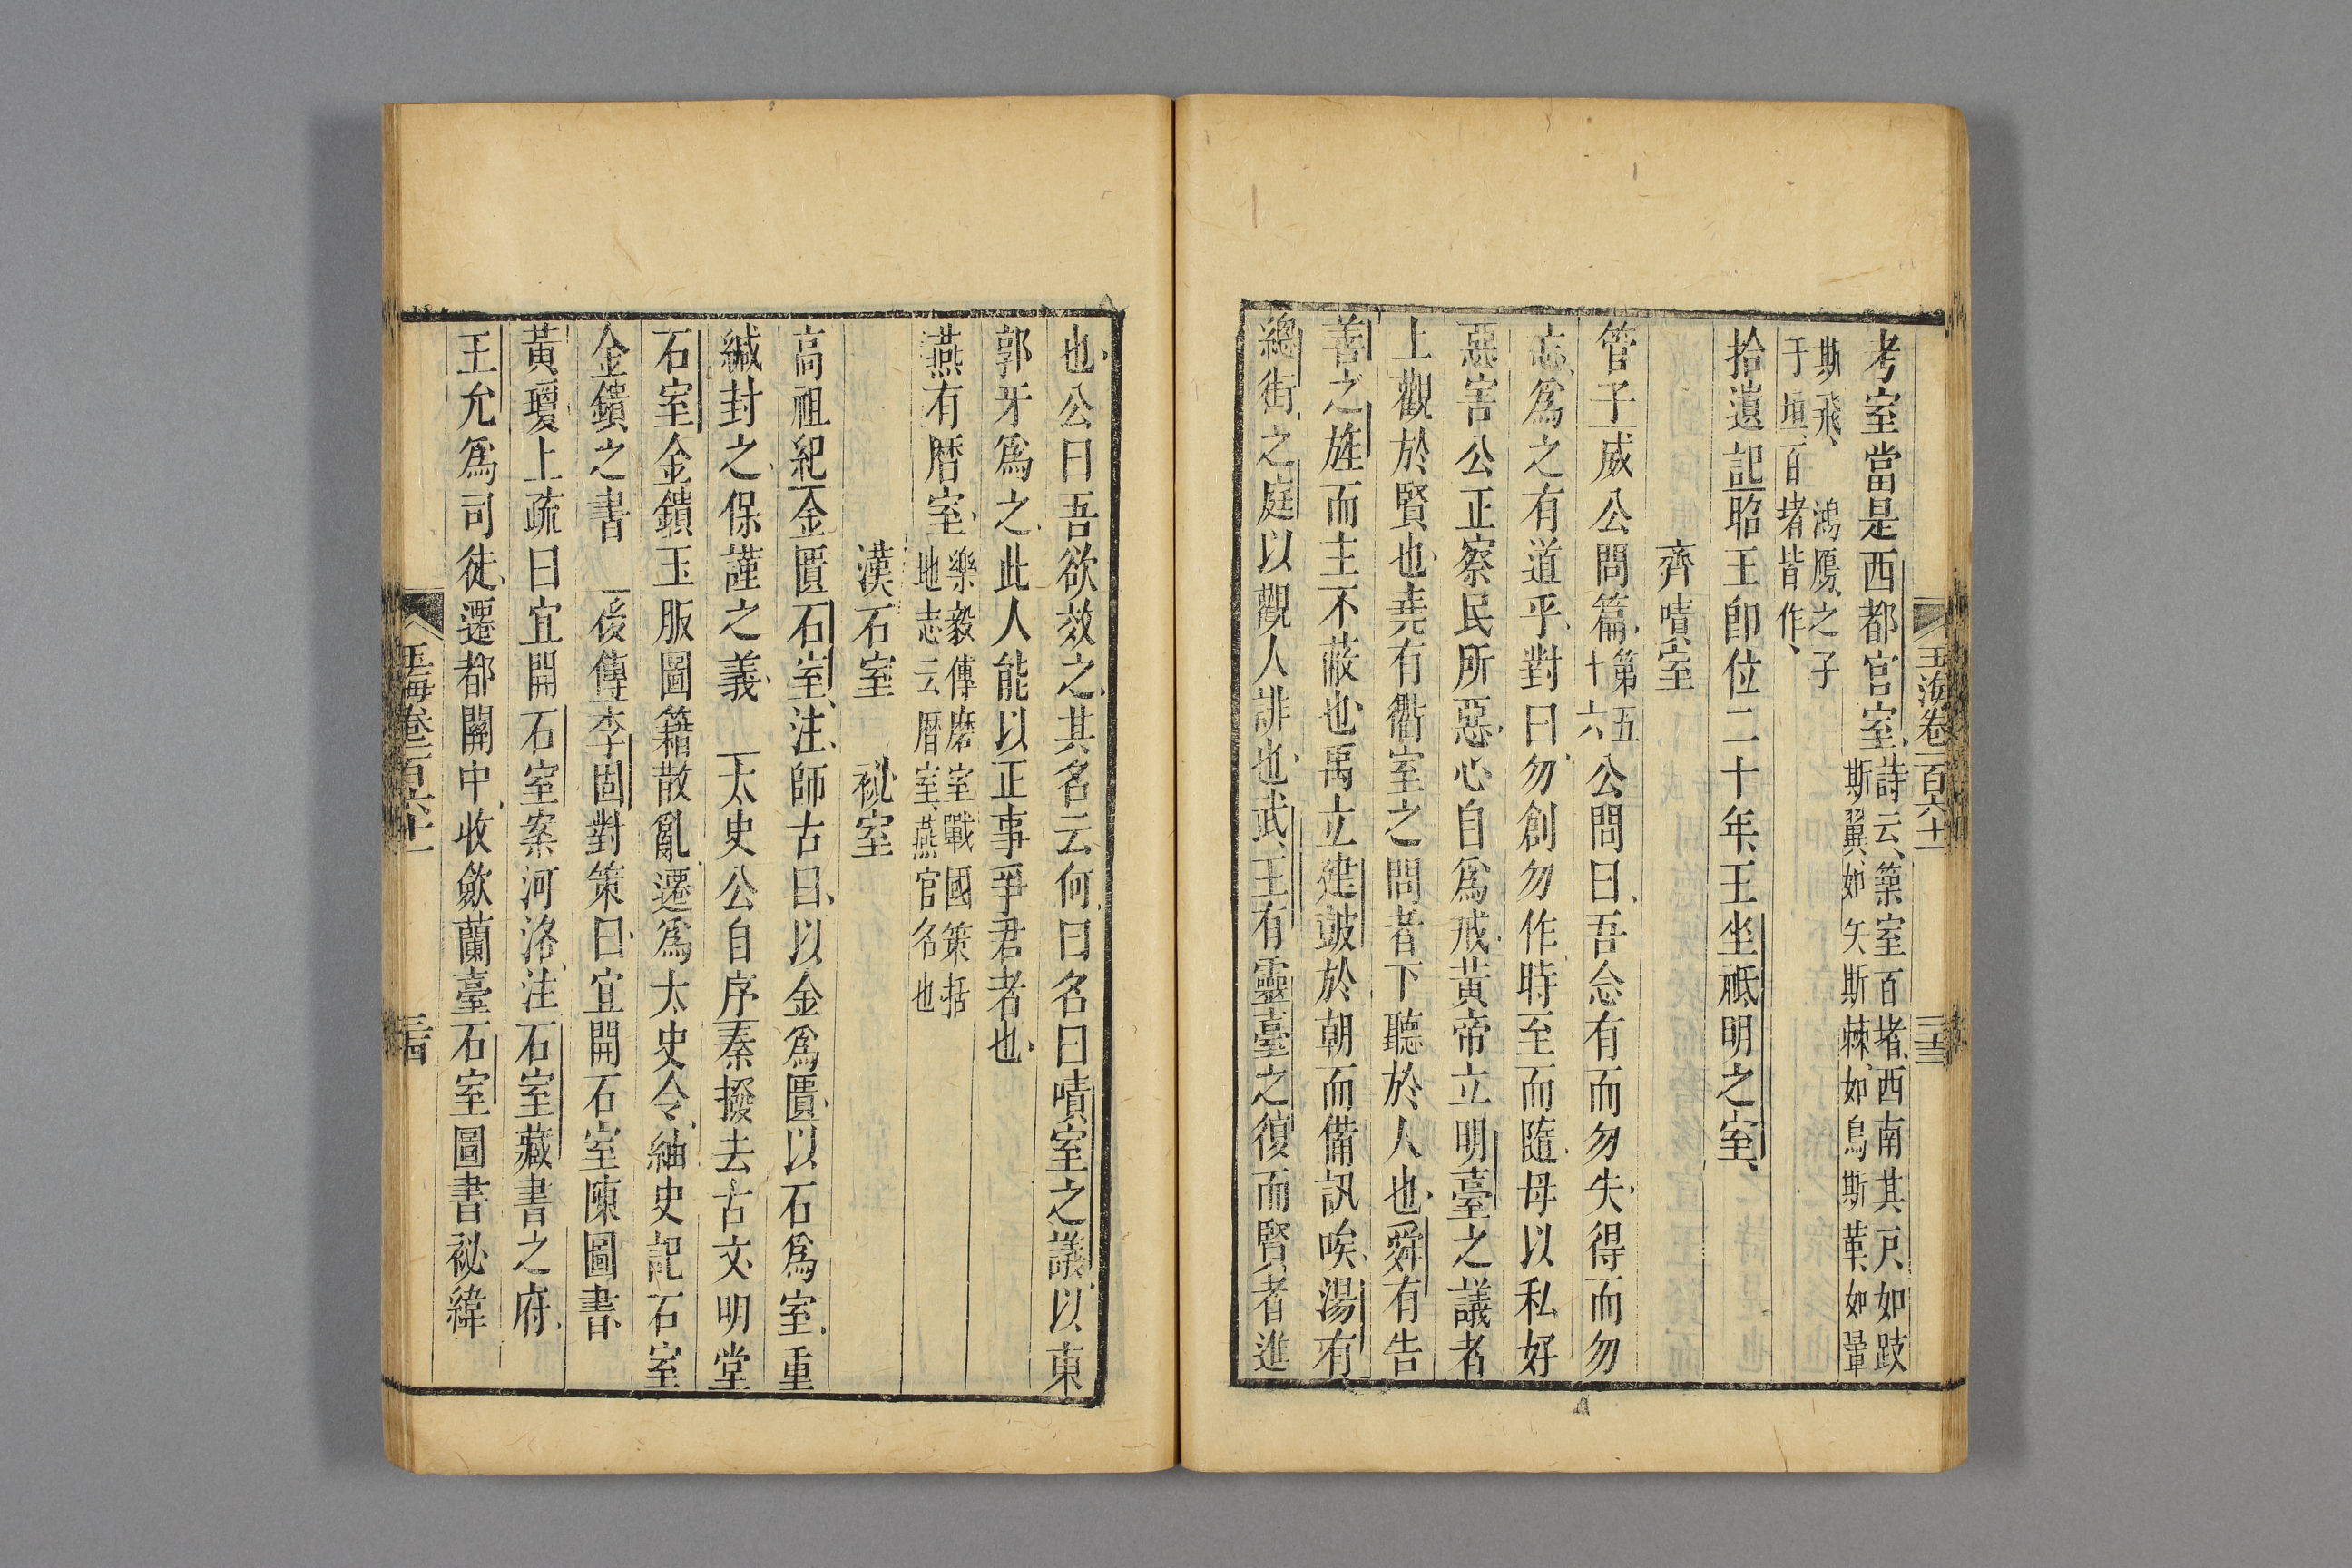 玉海卷一百六十一
二十三
考室當是西都官室詩云築室百堵西南其戶如跂
斯翼如矢斯棘如鳥斯革如翬
斯飛 鴻鴈之子
于垣百堵皆作
拾遺記昭王卽位二十年王坐祗明之室
齊嘖室
管子威公問篇第五
十六
公問曰吾念有而勿失得而勿
忘爲之有道乎對曰勿創勿作時至而隨毋以私好
惡害公正察民所惡心自爲戒黃帝立明臺之議者
上觀於賢也堯有衢室之問者下聽於人也舜有告
善之旌而主不蔽也禹立建鼓於朝而備訊唉湯有
總街之庭以觀人誹也武王有靈臺之復而賢者進
也公曰吾欲效之其名云何曰名曰嘖室之議以東
郭牙爲之此人能以正事爭君者也
燕有曆室樂毅傳磨室戰國策括
地志云曆室燕官名也
漢石室 祕室
高祖紀金匱石室注師古曰以金爲匱以石爲室重
緘封之保謹之義 太史公自序秦撥去古文明堂
石室金鐀玉服圖籍散亂遷爲太史令紬史記石室
金鐀之書 後傳李固對策曰宜開石室陳圖書
黃瓊上疏曰宜開石室案河洛注石室藏書之府
王允爲司徒遷都關中收斂蘭臺石室圖書祕緯
玉海卷一百六十一
二十四